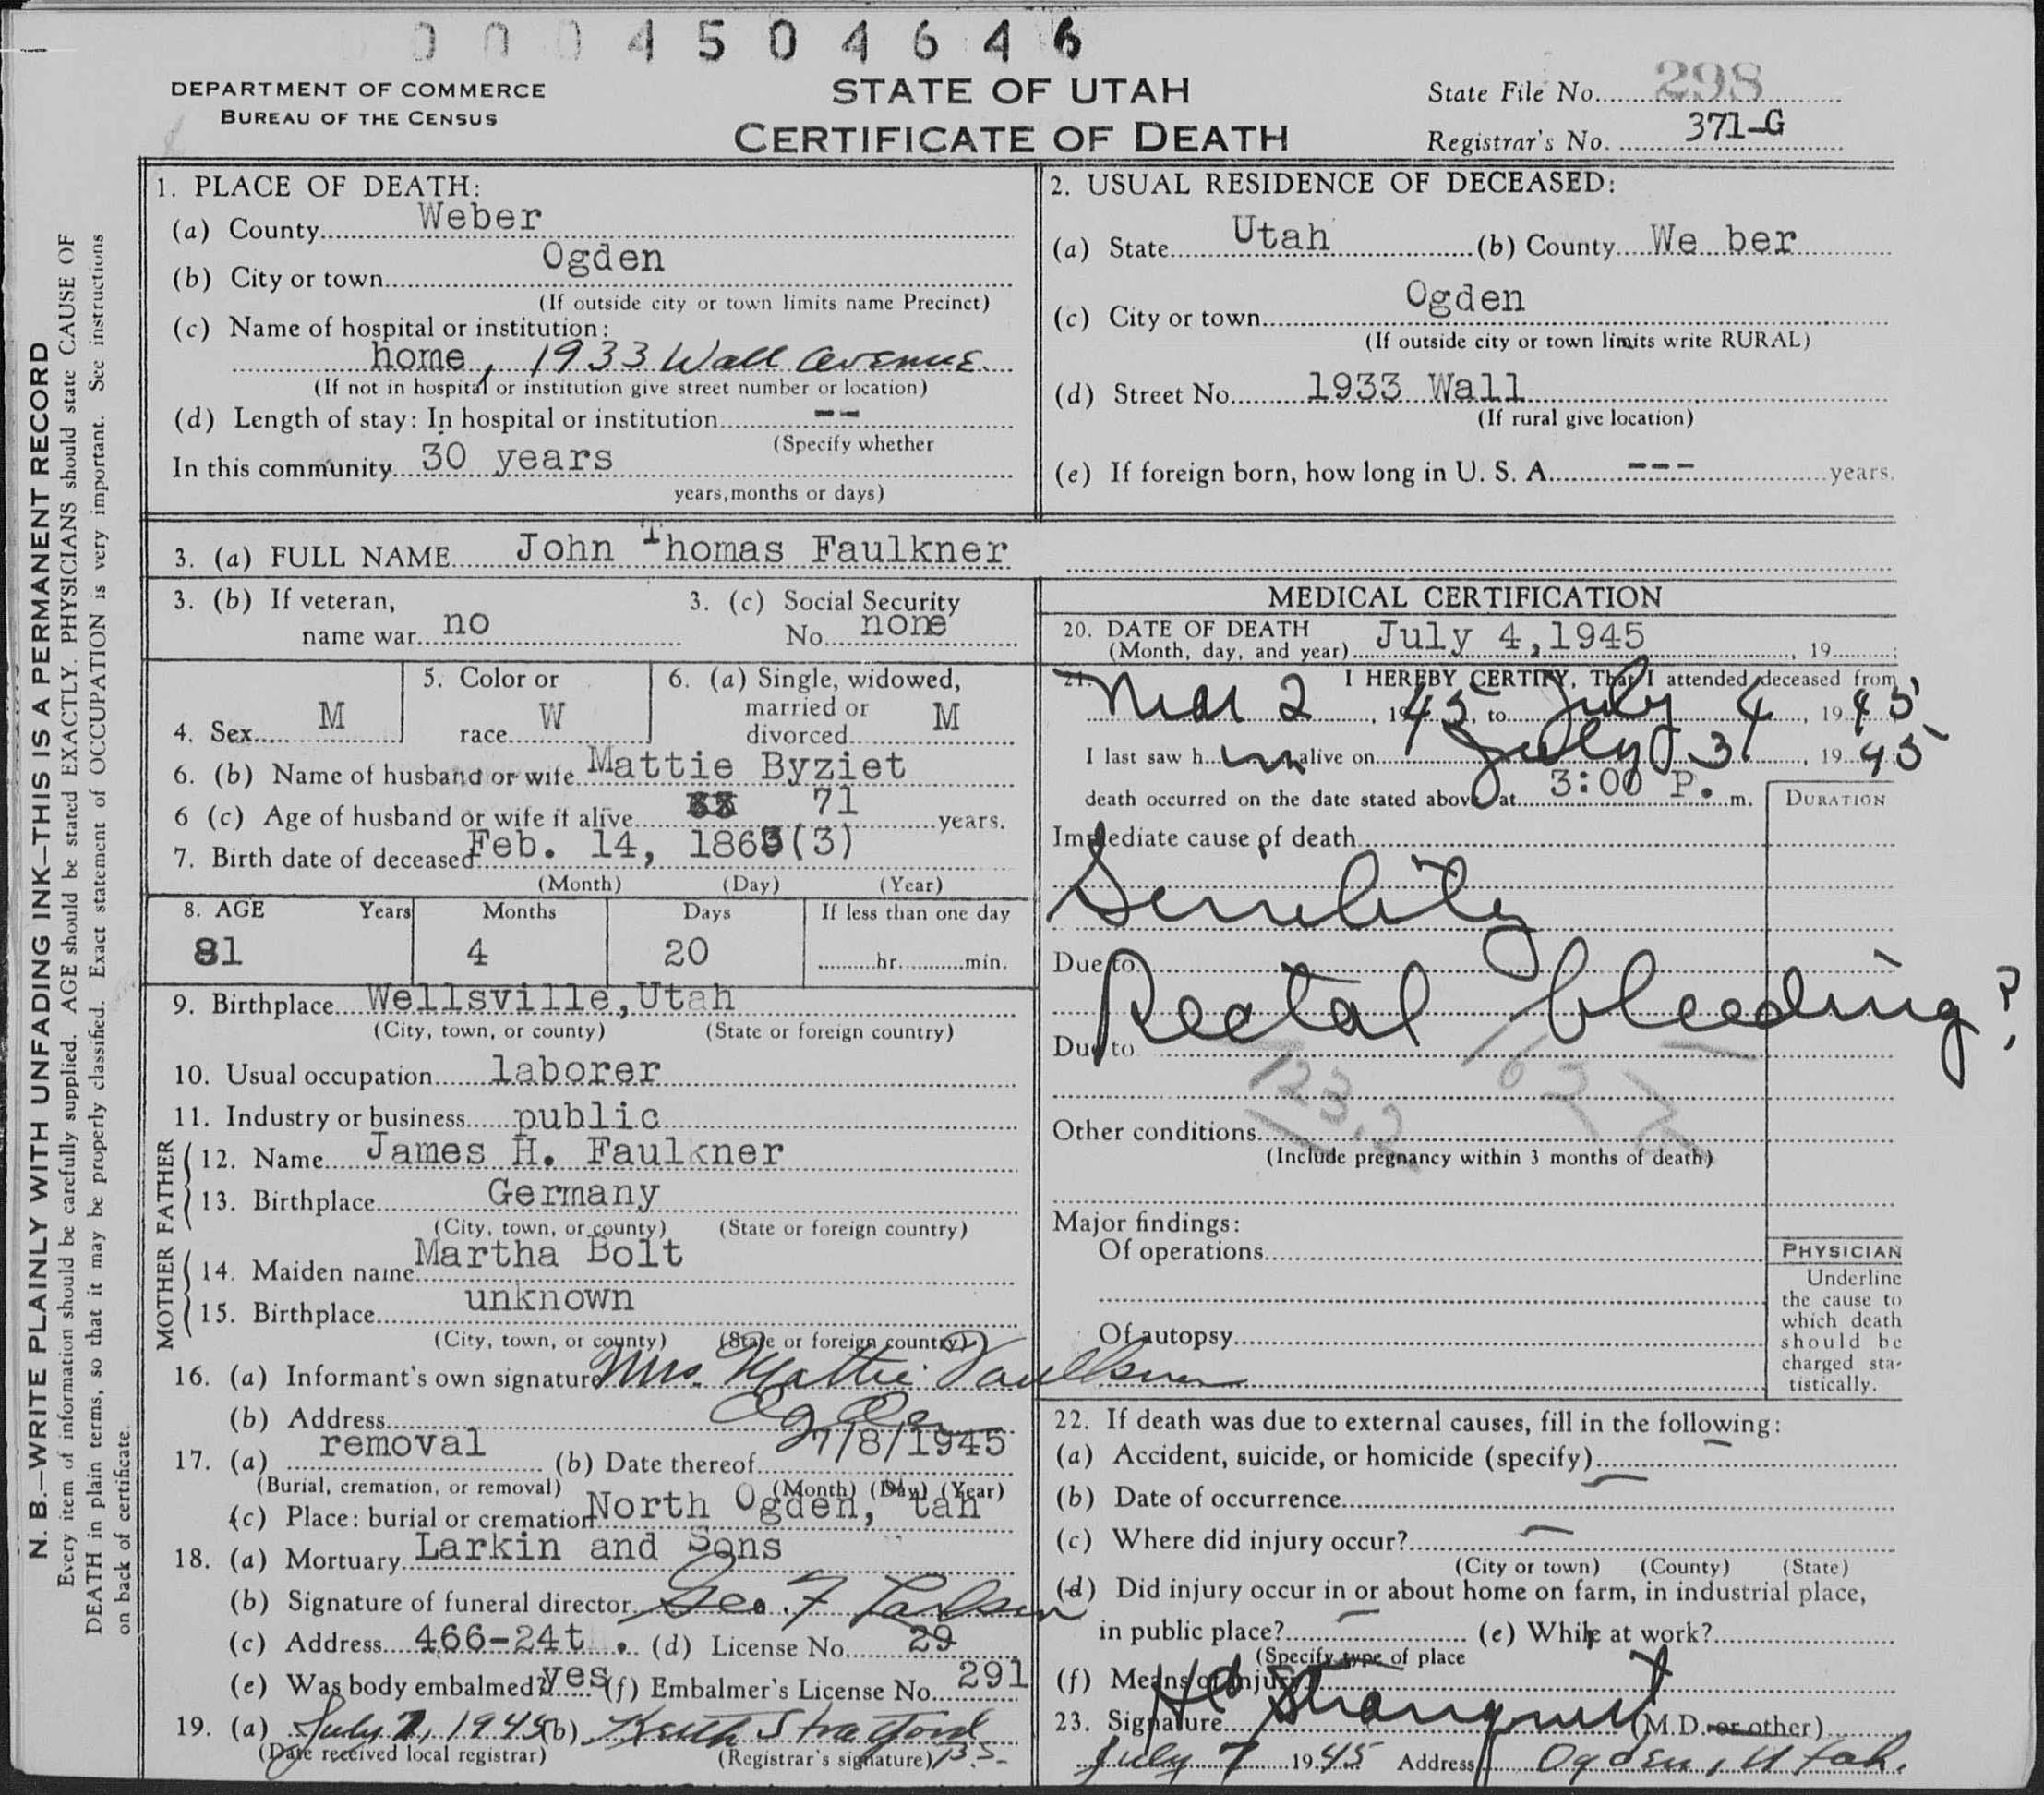 0 0 0 4 5 0 4 6 4 6
DEPARTMENT OF COMMERCE
BUREAU OF THE CENSUS
STATE OF UTAH
CERTIFICATE OF DEATH
State File No. 298
Registrar's No. 371-G
N. B.—WRITE PLAINLY WITH UNFADING INK—THIS IS A PERMANENT RECORD
Every item of information should be carefully supplied. AGE should be stated EXACTLY. PHYSICIANS should state CAUSE OF
DEATH in plain terms, so that it may be properly classified. Exact statement of OCCUPATION is very important. See instructions
on back of certificate.
1. PLACE OF DEATH:
(a) County Weber
(b) City or town Ogden
(If outside city or town limits name Precinct)
(c) Name of hospital or institution:
home, 1933 Wall Avenue
(If not in hospital or institution give street number or location)
(d) Length of stay: In hospital or institution --
(Specify whether
In this community 30 years
years, months or days)
2. USUAL RESIDENCE OF DECEASED:
(a) State Utah (b) County We ber
(c) City or town Ogden
(If outside city or town limits write RURAL)
(d) Street No. 1933 Wall
(If rural give location)
(e) If foreign born, how long in U. S. A. --- years.
3. (a) FULL NAME John Thomas Faulkner
3. (b) If veteran,
name war no
3. (c) Social Security
No. none
4. Sex M
5. Color or
race W
6. (a) Single, widowed,
married or
divorced M
6. (b) Name of husband or wife Mattie Byziet
6 (c) Age of husband or wife if alive 71 years.
7. Birth date of deceased Feb. 14, 1863(3)
(Month) (Day) (Year)
8. AGE Years Months Days If less than one day
81 4 20 hr. min.
9. Birthplace Wellsville, Utah
(City, town, or county) (State or foreign country)
10. Usual occupation laborer
11. Industry or business public
FATHER
12. Name James H. Faulkner
13. Birthplace Germany
(City, town, or county) (State or foreign country)
MOTHER
14. Maiden name Martha Bolt
15. Birthplace unknown
(City, town, or county) (State or foreign country)
16. (a) Informant's own signature Mrs. Mattie Faulkner
(b) Address Ogden
17. (a) removal (b) Date thereof 7/8/1945
(Burial, cremation, or removal) (Month) (Day) (Year)
(c) Place: burial or cremation North Ogden, tah
18. (a) Mortuary Larkin and Sons
(b) Signature of funeral director Geo. F
(c) Address 466-24t . (d) License No. 29
(e) Was body embalmed? yes (f) Embalmer's License No. 291
19. (a) July 7, 1945 (b) Keith Stratford
(Date received local registrar) (Registrar's signature) B.S.
MEDICAL CERTIFICATION
20. DATE OF DEATH
(Month, day, and year) July 4, 1945, 19 ;
21. I HEREBY CERTIFY, That I attended deceased from
Mar 2, 1945, to July 4, 1945
I last saw him alive on July 3, 1945
death occurred on the date stated above at 3:00 P. m.
DURATION
Immediate cause of death
Senility
Due to
Rectal bleeding?
Due to
123.2
Other conditions
(Include pregnancy within 3 months of death)
Major findings:
Of operations
Of autopsy
PHYSICIAN
Underline
the cause to
which death
should be
charged sta-
tistically.
22. If death was due to external causes, fill in the following:
(a) Accident, suicide, or homicide (specify)
(b) Date of occurrence
(c) Where did injury occur?
(City or town) (County) (State)
(d) Did injury occur in or about home on farm, in industrial place,
in public place? (e) While at work?
(Specify type of place
(f) Means of injury
23. Signature Stranquist (M.D. or other)
July 7 1945 Address Ogden, Utah.